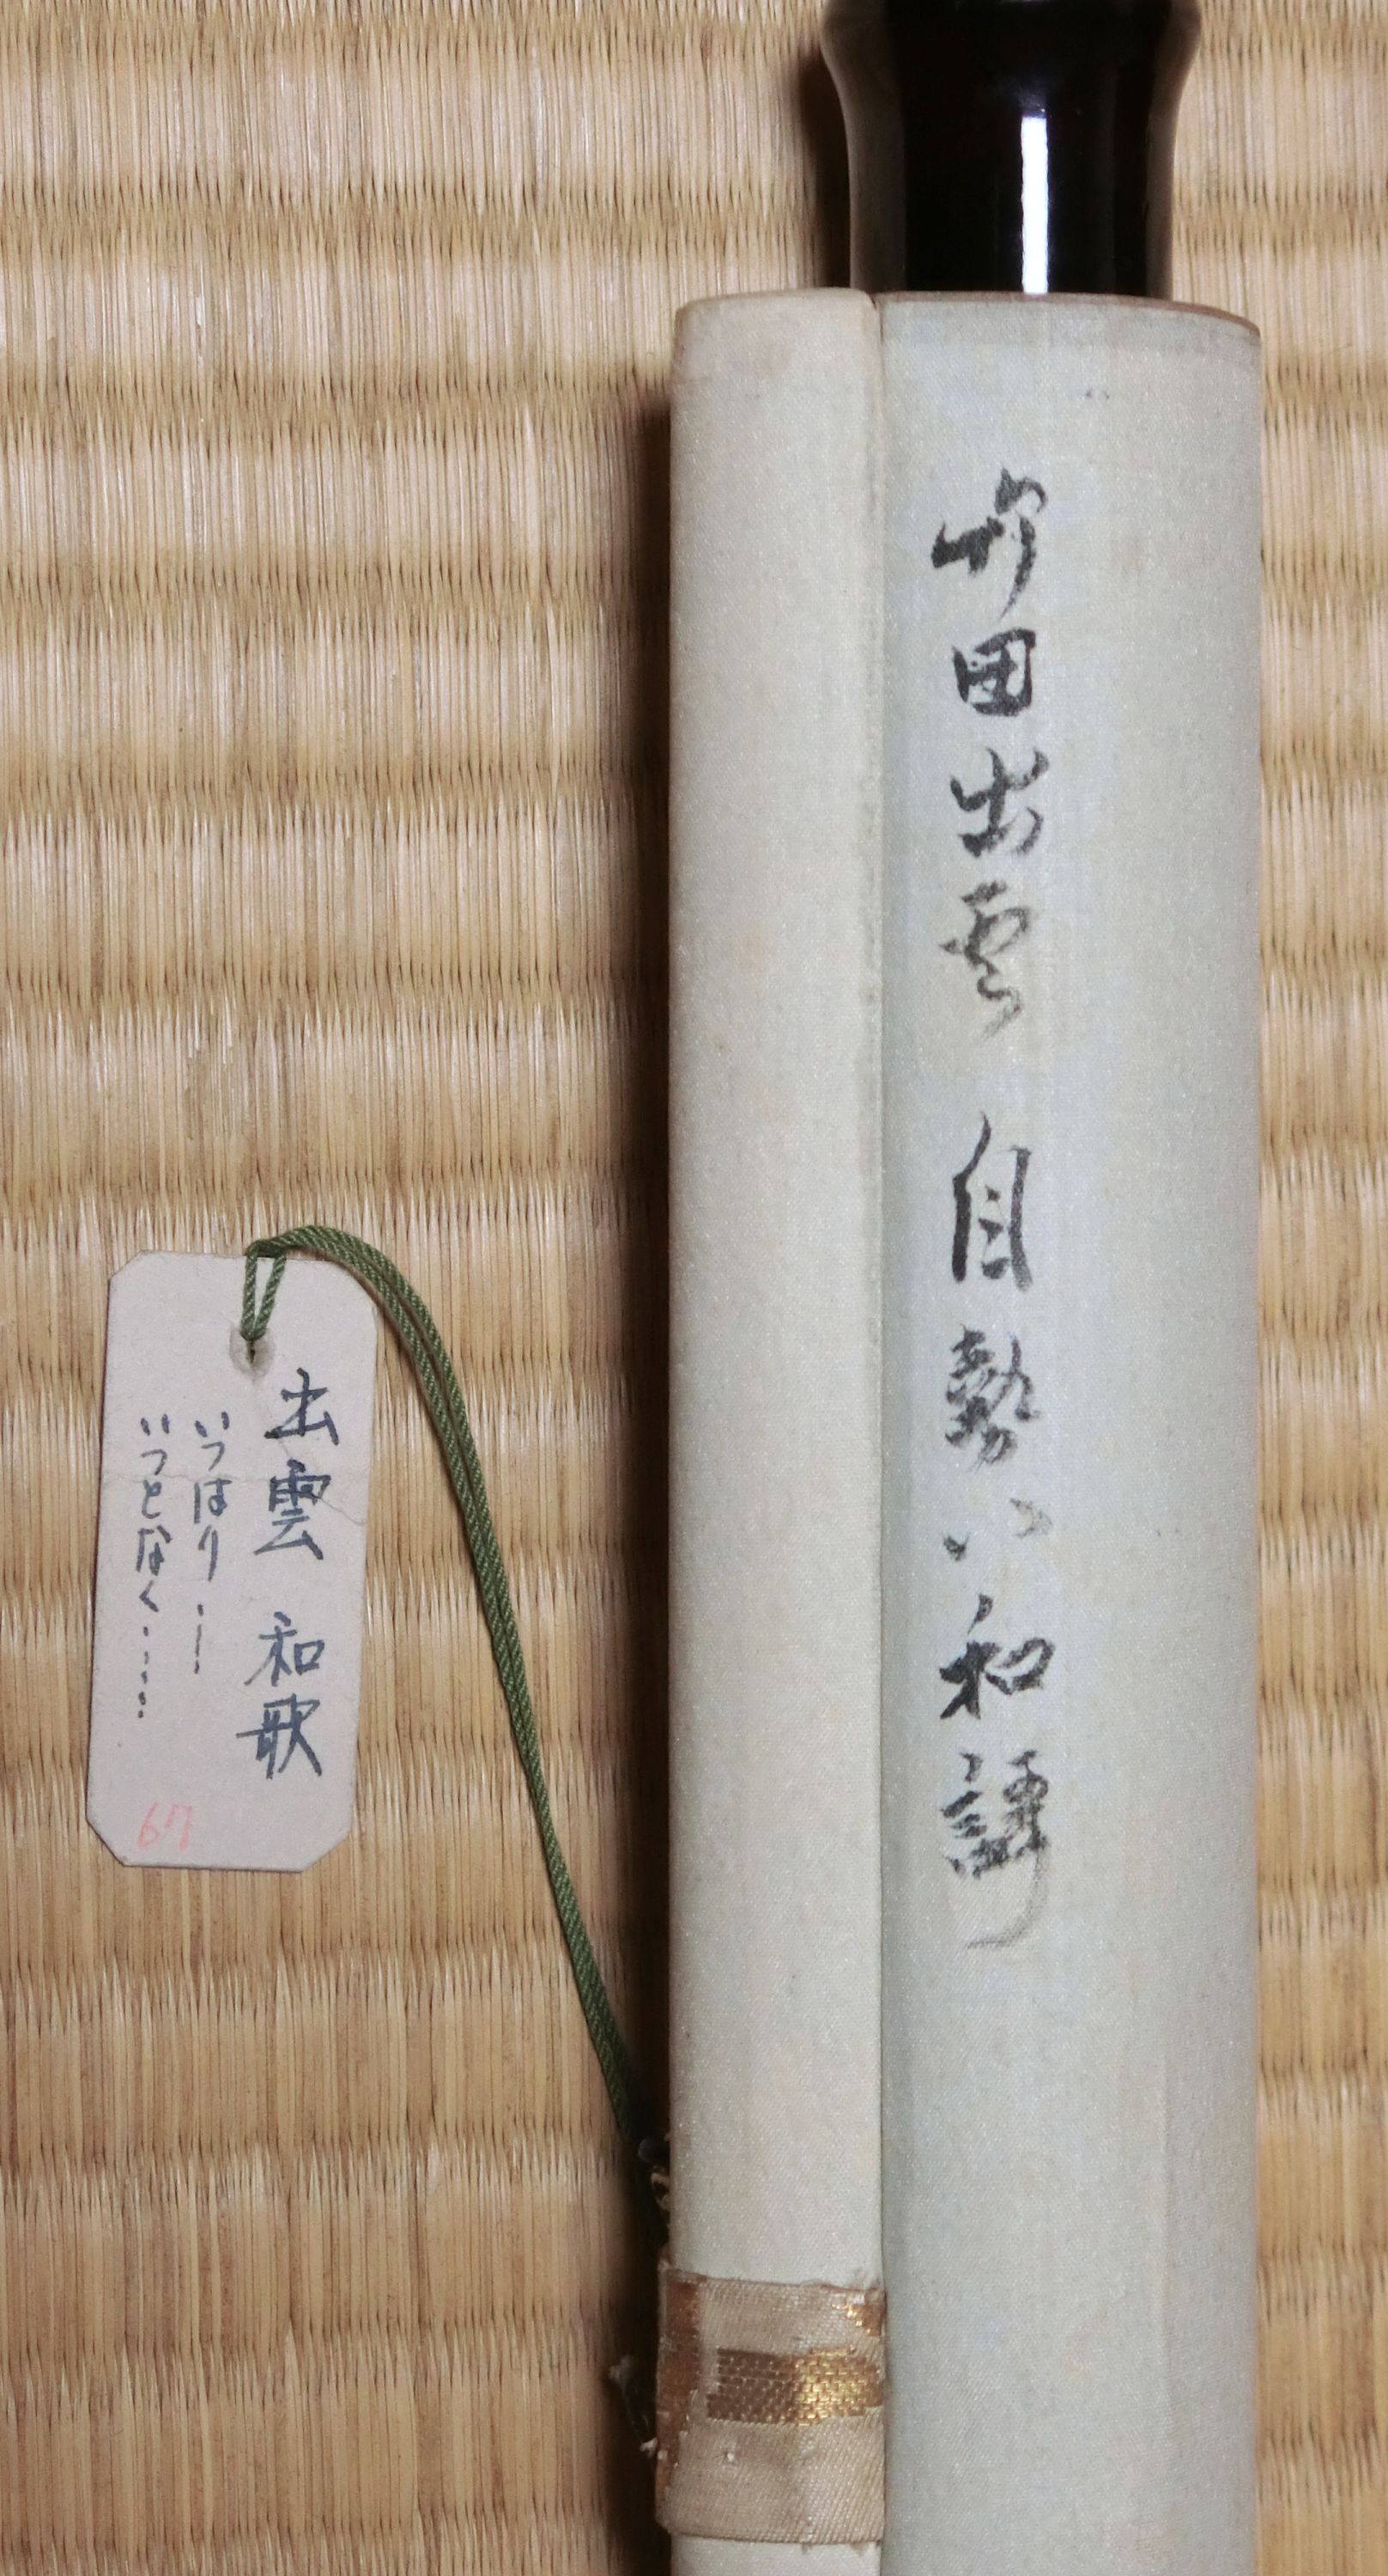 竹田出雲 自勢い和謌
出雲 和歌
いつはり……
いつとなく……
67